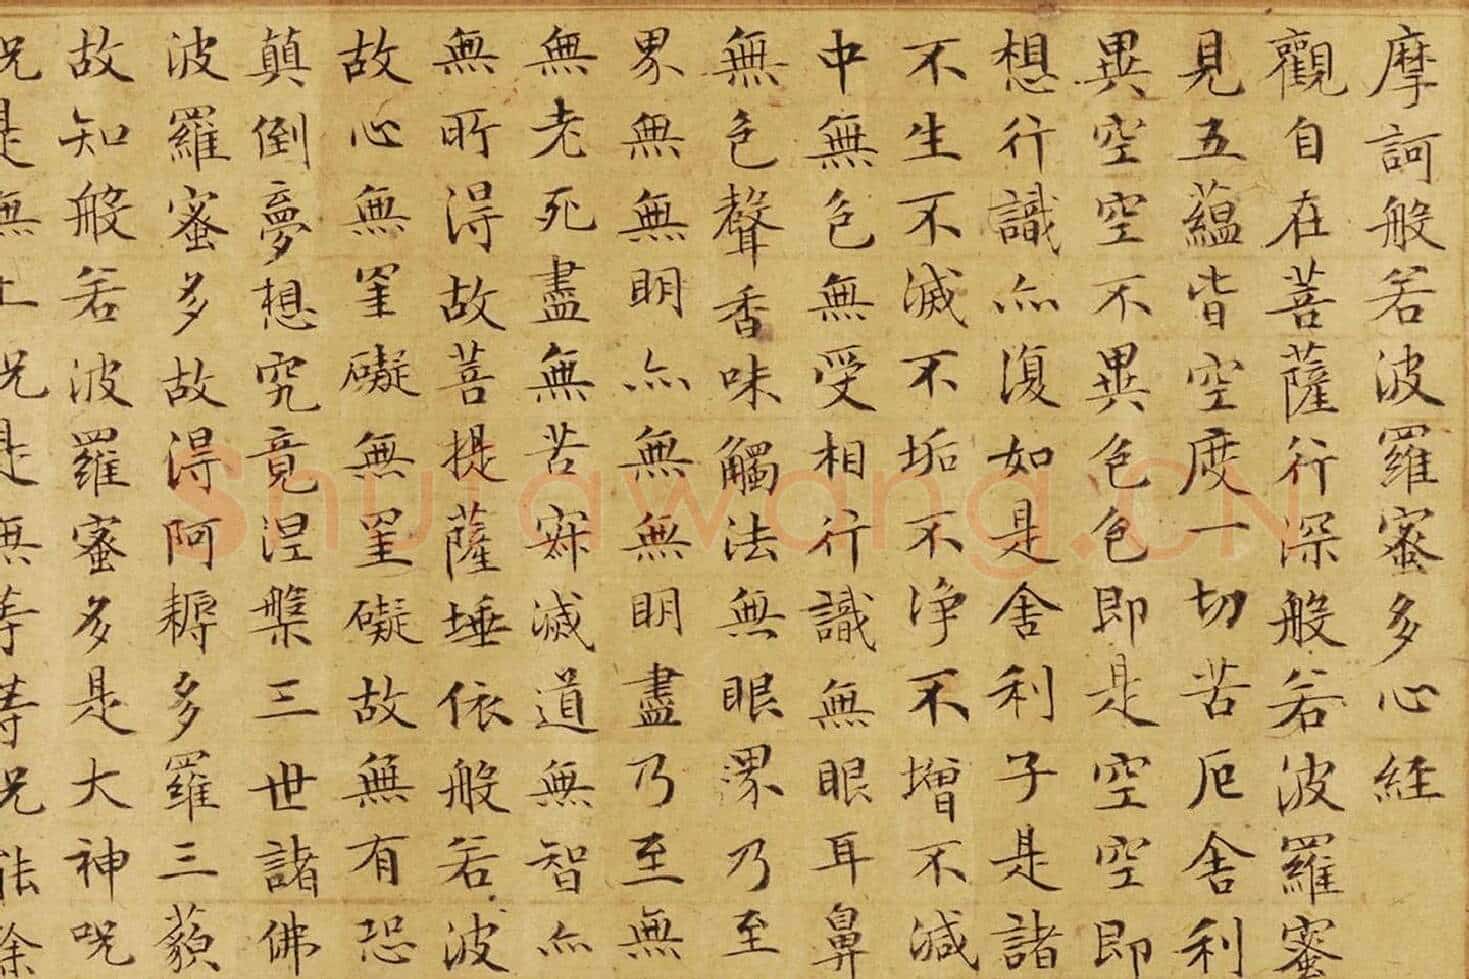 摩訶般若波羅蜜多心經
觀自在菩薩行深般若波羅蜜
見五蘊皆空度一切苦厄舍利
異空空不異色色即是空空即
想行識亦復如是舍利子是諸
不生不滅不垢不淨不增不減
中無色無受相行識無眼耳鼻
無色聲香味觸法無眼界乃至
界無無明亦無無明盡乃至無
無老死盡無苦寂滅道無智亦
無所得故菩提薩埵依般若波
故心無罣礙無罣礙故無有恐
顛倒夢想究竟涅槃三世諸佛
波羅蜜多故得阿耨多羅三藐
故知般若波羅蜜多是大神呪
呪是無上呪是無等等呪能除
Shufawang.CN